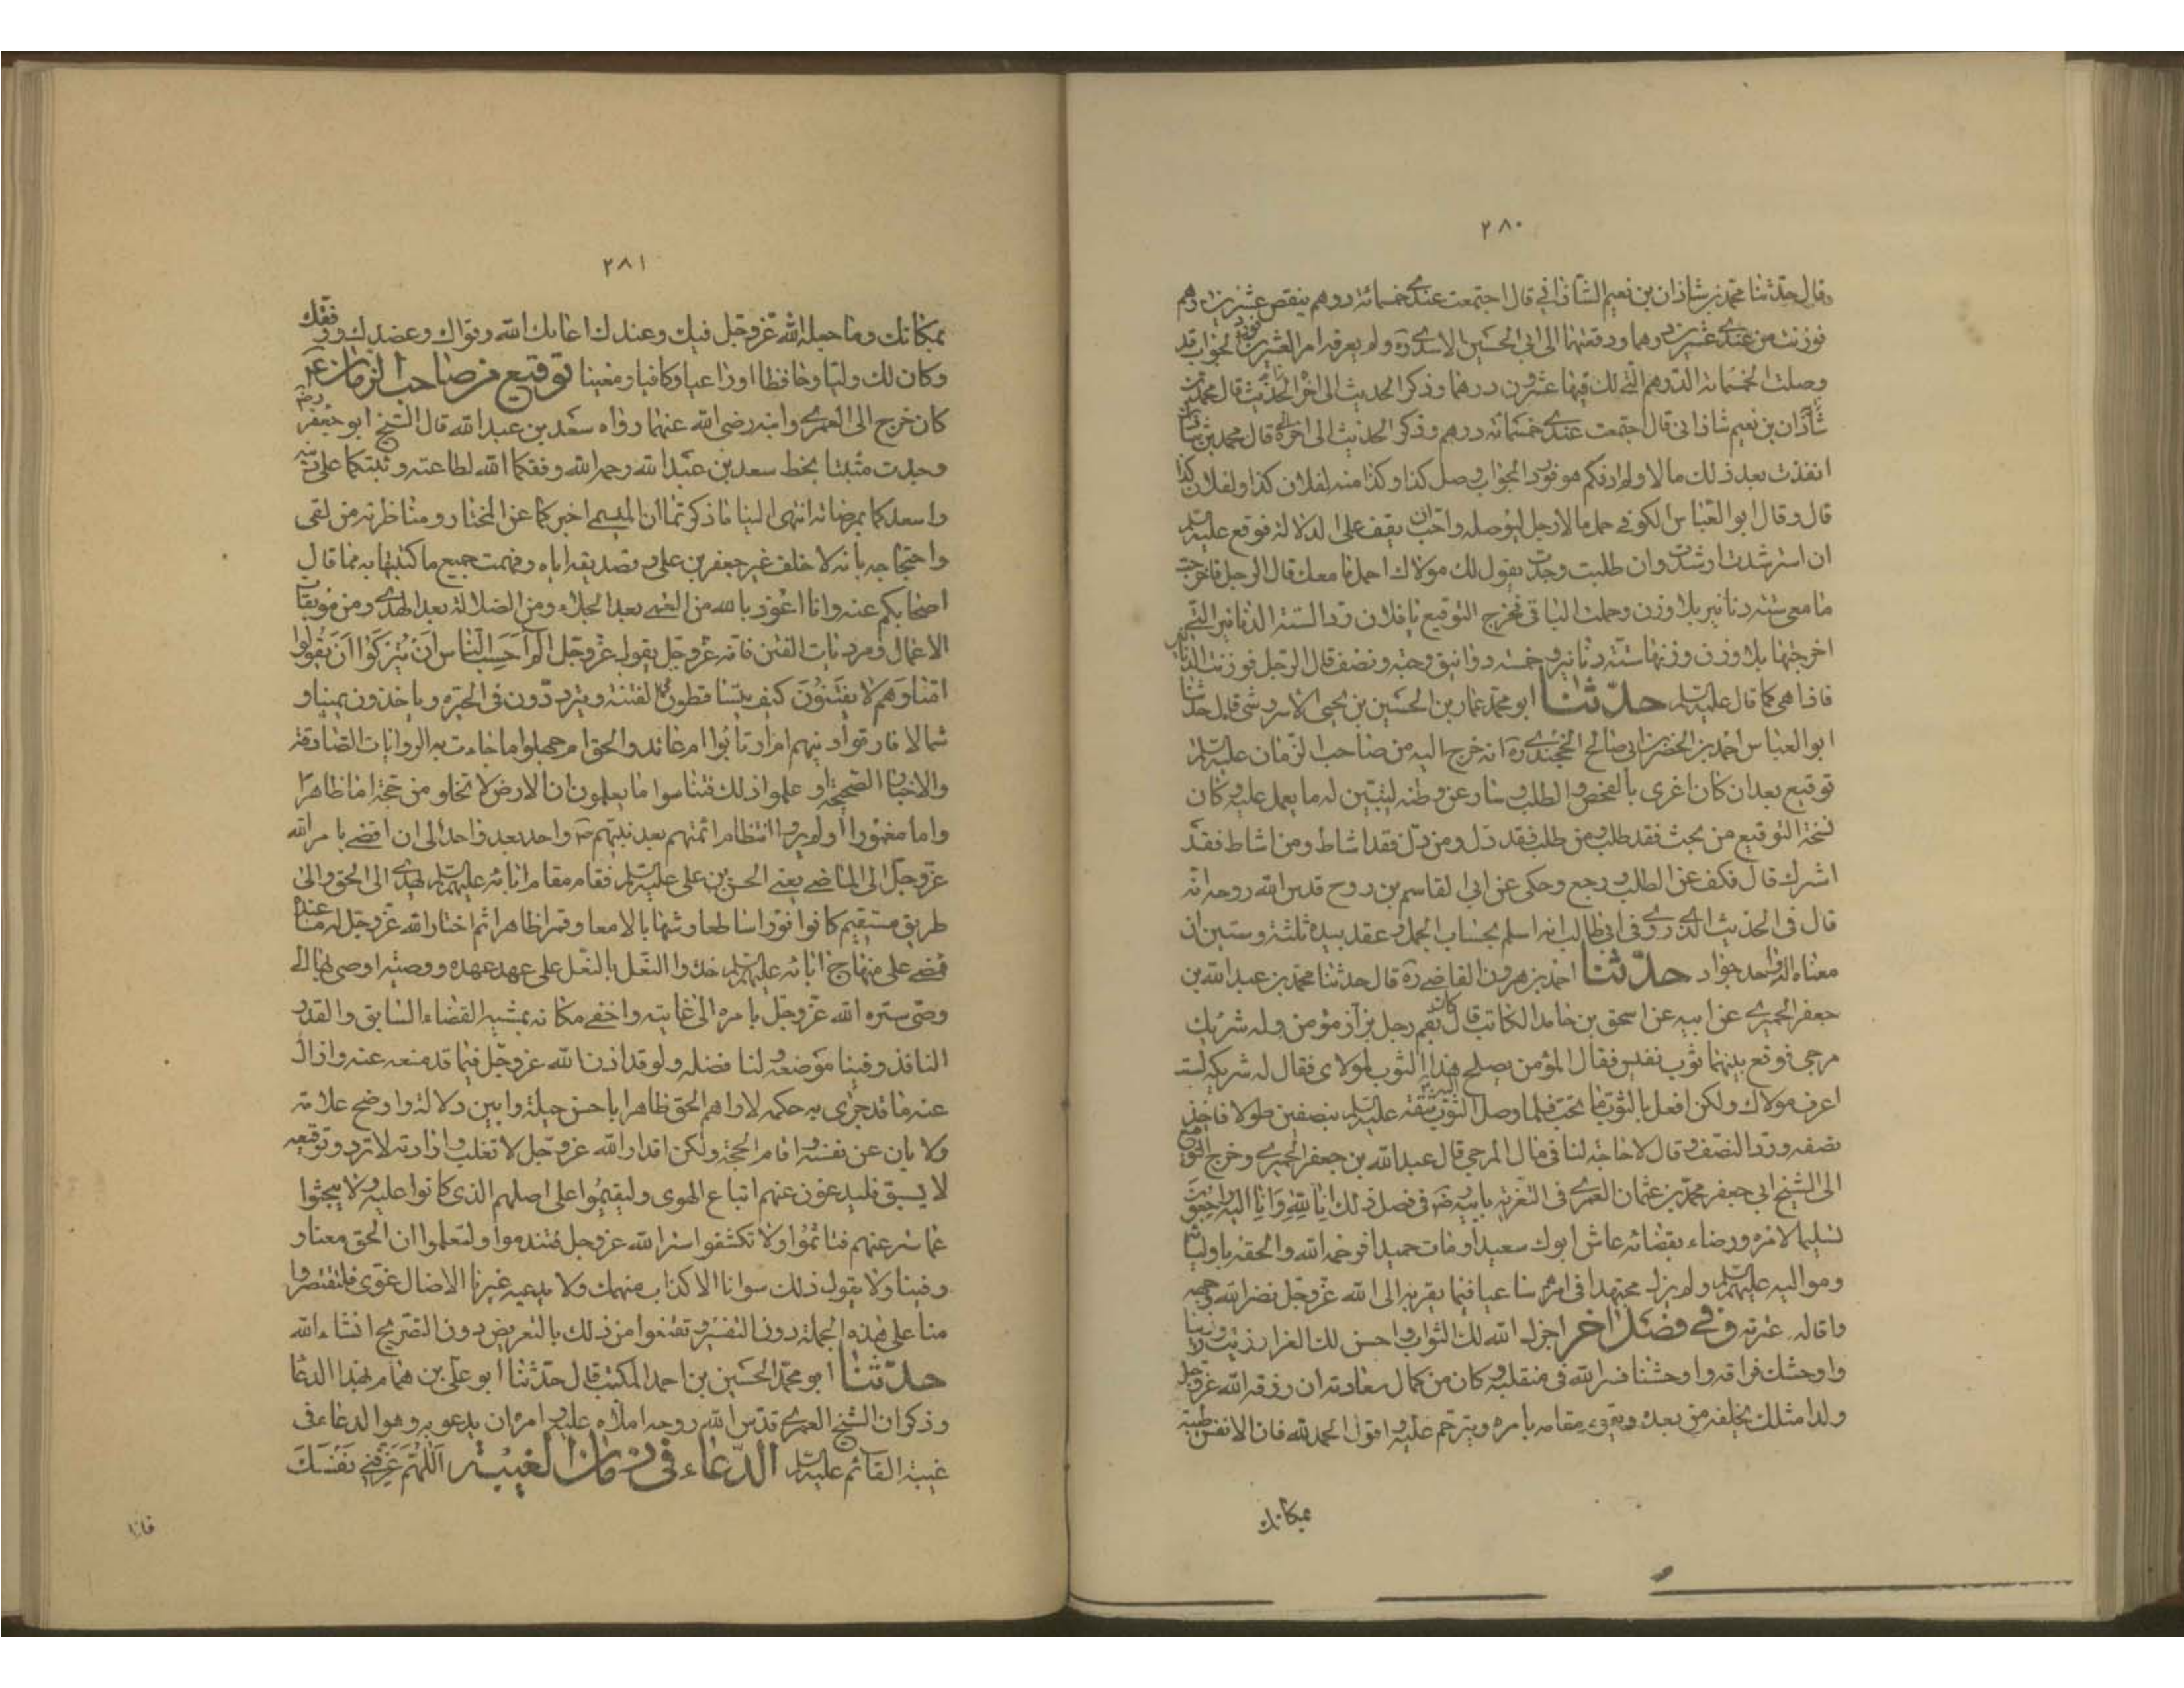 ٢٨٠
وقال حدثنا محمد بن شاذان بن نعيم الشاذانى قال اجتمعت عندى خمسمائة درهم ينقص عشرين درهم
فوزنت من عندى عشرين درهما ودفعتهما الى ابى الحسين الاسدى ره ولم يعرفه امر العشرين فورد الجواب قد
وصلت الخمسمائة الدرهم التى لك فيها عشرون درهما وذكر الحديث الى اخر الحديث قال محمد بن
شاذان بن نعيم شاذانى قال اجتمعت عندى خمسمائة درهم وذكر الحديث الى اخره قال محمد بن شاذان
انفذت بعد ذلك مالا ولم اذكم هو فورد الجواب وصل كذا وكذا منه لفلان كذا ولفلان كذا
قال وقال ابو العباس الكوفى حمل مالا رجل ليوصله واحب ان يقف على الدلالة فوقع عليه السلم
ان استرشدت ارشدت وان طلبت وجدت يقول لك مولاك احمل ما معك قال الرجل فاخرجت
مما معى ستة دنانير بلا وزن وحملت الباقى فخرج التوقيع يا فلان رد الستة الدنانير التى
اخرجتها بلا وزن وزنها ستة دنانير وخمسة دوانيق وحبة ونصف قال الرجل فوزنت الدنانير
فاذا هى كما قال عليه السلم حدثنا ابو محمد عمار بن الحسين بن يحيى الاسروشنى قال حدثنا
ابو العباس احمد بن الخضر بن ابى صالح الخجندى ره انه خرج اليه من صاحب الزمان عليه السلم
توقيع بعد ان كان اغرى بالفحص والطلب وسار عن وطنه ليتبين له ما يعمل عليه وكان
نسخة التوقيع من بحث فقد طلب ومن طلب فقد دل ومن دل فقد اشاط ومن اشاط فقد
اشرك قال فكف عن الطلب ورجع وحكى عن ابى القاسم بن روح قدس الله روحه انه
قال فى الحديث الذى روى فى ابى طالب انه اسلم بحساب الجمل وعقد بيده ثلثة وستين ان
معناه اله احد جواد حدثنا احمد بن هرون القاضى ره قال حدثنا محمد بن عبد الله بن
جعفر الحميرى عن ابيه عن اسحق بن حامد الكاتب قال كان بقم رجل بزاز مؤمن وله شريك
مرجى فوقع بينهما ثوب نفيس فقال المؤمن يصلح هذا الثوب لمولاى فقال له شريكه لست
اعرف مولاك ولكن افعل بالثوب ما تحب فلما وصل الثوب شقه عليه السلم بنصفين طولا فاخذ
نصفه ورد النصف وقال لا حاجة لنا فى مال المرجى قال عبد الله بن جعفر الحميرى وخرج التوقيع
الى الشيخ ابى جعفر محمد بن عثمان العمرى فى التعزية بابيه رض فى فصل ذلك انا لله وانا اليه راجعون
تسليما لامره ورضاء بقضائه عاش ابوك سعيدا ومات حميدا فرحمه الله والحقه باوليائه
ومواليه عليهم السلم ولم يزل مجتهدا فى امرهم ساعيا فيما يقربه الى الله عز وجل نضر الله وجهه
واقاله عثرته وفى فصل اخر اجزل الله لك الثواب واحسن لك العزا رزيت ورزينا
واوحشك فراقه واوحشنا فسره الله فى منقلبه وكان من كمال سعادته ان رزقه الله عز وجل
ولدا مثلك يخلفه من بعده ويقوم مقامه بامره ويترحم عليه واقول الحمد لله فان الانفس طيبة
بمكانك
٢٨١
بمكانك وما جعله الله عز وجل فيك وعندك اعانك الله وقواك وعضدك ووفقك
وكان لك وليا وحافظا وراعيا وكافيا ومعينا توقيع من صاحب الزمان ع
كان خرج الى العمرى وابنه رضى الله عنهما رواه سعد بن عبد الله قال الشيخ ابو جعفر رض
وجدت مثبتا بخط سعد بن عبد الله رحمه الله وفقكما الله لطاعته وثبتكما على دينه
واسعدكما بمرضاته انتهى الينا ما ذكرتما ان الميسمى اخبركما عن المختار ومناظرته من لقى
واحتجاجه بانه لا خلف غير جعفر بن على وتصديقه اياه وفهمت جميع ما كتبتما به مما قال
اصحابكم عنه وانا اعوذ بالله من العمى بعد الجلاء ومن الضلالة بعد الهدى ومن موبقات
الاعمال ومرديات الفتن فانه عز وجل يقول عز وجل الم احسب الناس ان يتركوا ان يقولوا
امنا وهم لا يفتنون كيف يتساقطون فى الفتنة ويترددون فى الحيرة وياخذون يمينا و
شمالا فارقوا دينهم ام ارتابوا ام عاندوا الحق ام جهلوا ما جاءت به الروايات الصادقة
والاخبار الصحيحة او علموا ذلك فتناسوا ما يعلمون ان الارض لا تخلو من حجة اما ظاهرا
واما مغمورا اولم يروا انتظام ائمتهم بعد نبيهم ص واحد بعد واحد الى ان افضى بامر الله
عز وجل الى الماضى يعنى الحسن بن على عليه السلم فقام مقام ابائه عليهم السلم يهدى الى الحق والى
طريق مستقيم كانوا نورا ساطعا وشهابا لامعا وقمرا ظاهرا ثم اختار الله عز وجل له ما عنده
فمضى على منهاج ابائه عليهم السلم حذو النعل بالنعل على عهد عهده ووصية اوصى بها الى
وصى ستره الله عز وجل بامره الى غايته واخفى مكانه بمشيه القضاء السابق والقدر
النافذ وفينا موضعه ولنا فضله ولو قد اذن الله عز وجل فيما قد منعه عنه وازال
عنه ما قد جرى به حكمه لاراهم الحق ظاهرا باحسن حيلة وابين دلالة واوضح علامة
ولابان عن نفسه واقام الحجة ولكن اقدار الله عز وجل لا تغلب وارادته لا ترد وتوقيعه
لا يسبق فليدعون عنهم اتباع الهوى وليقيموا على اصلهم الذى كانوا عليه ولا يبحثوا
عما ستر عنهم فياثموا ولا تكشفوا ستر الله عز وجل فتندموا ولتعلموا ان الحق معنا و
وفينا ولا يقول ذلك سوانا الا كذاب منهمك ولا يدعيه غيرنا الا ضال غوى فلتقتصروا
منا على هذه الجملة دون التفسير وتقنعوا من ذلك بالتعريض دون التصريح انشاء الله
حدثنا ابو محمد الحسين بن احمد المكتب قال حدثنا ابو على بن همام بهذا الدعا
وذكر ان الشيخ العمرى قدس الله روحه املاه عليه وامره ان يدعو به وهو الدعاء فى
غيبة القائم عليه السلم الدعاء فى زمان الغيبة اللهم عرفنى نفسك